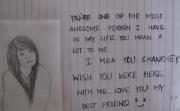 YOU'RE ONE OF THE MOST
AWESOME PERSON I HAVE
IN MY LIFE. YOU MEAN A
LOT TO ME.
I MISS YOU CHANCHEY
WISH YOU WERE HERE
WITH ME.. LOVE YOU MY
BEST FRIEND